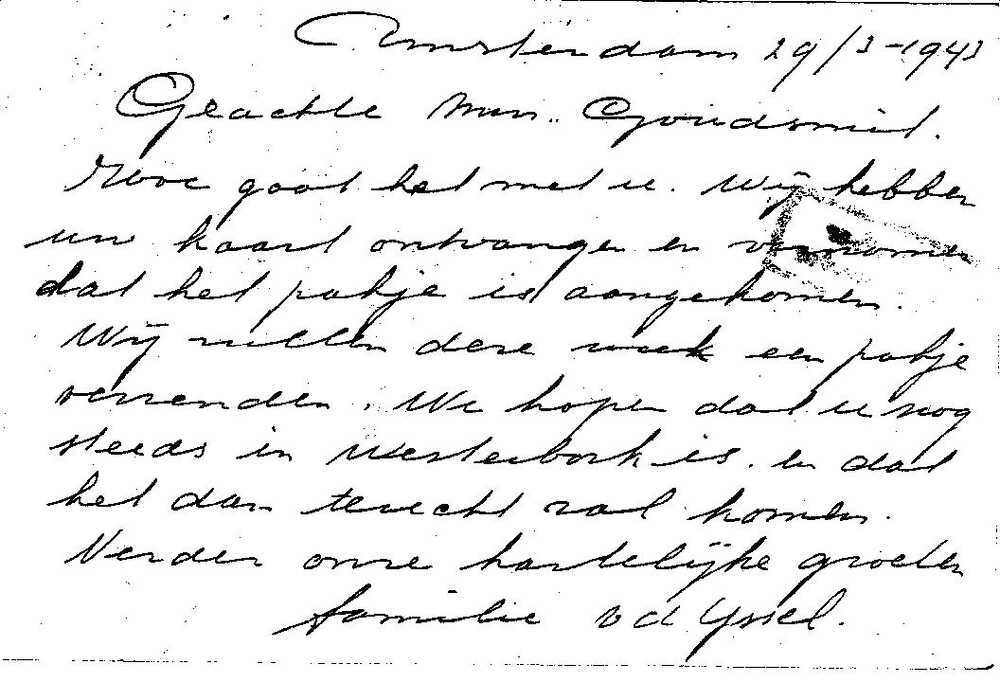 Amsterdam 29/3-1943
Geachte Mvr. Goudsmit.
Hoe gaat het met u. Wij hebben
uw kaart ontvangen en vernomen
dat het pakje is aangekomen.
Wij zullen deze week een pakje
verzenden. We hopen dat u nog
steeds in Westerbork is. En dat
het dan terecht zal komen.
Verder onze hartelijke groeten
familie v d Yssel.